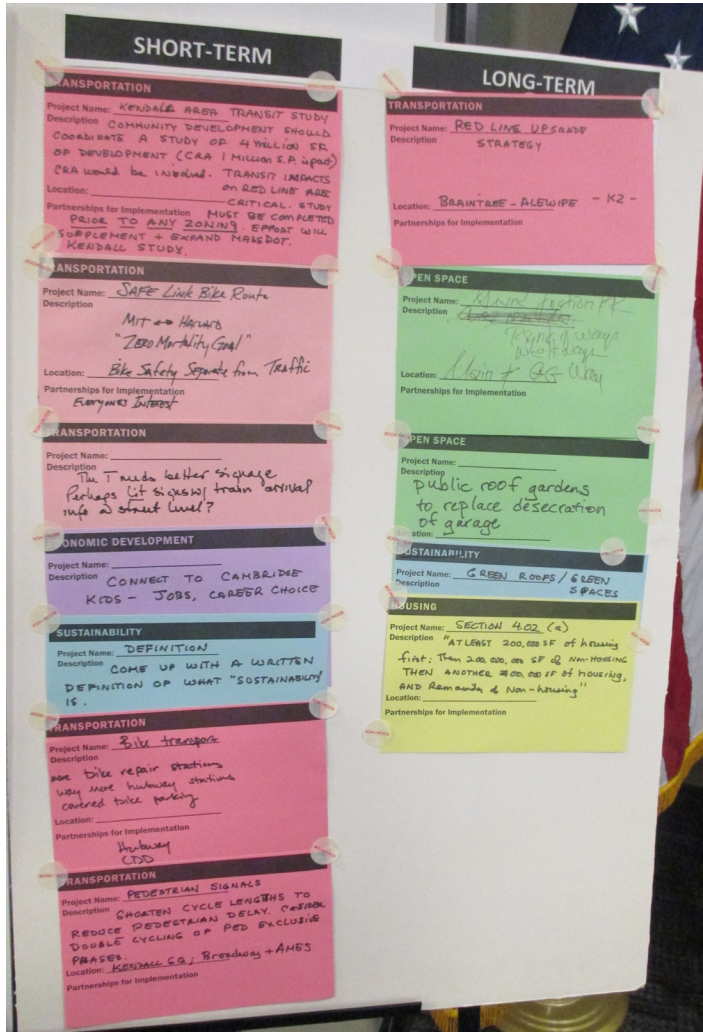 SHORT-TERM
TRANSPORTATION
Project Name: KENDALL AREA TRANSIT STUDY
Description COMMUNITY DEVELOPMENT SHOULD
COORDINATE A STUDY OF 4 MILLION SF
OF DEVELOPMENT (CRA 1 MILLION S.F. impact)
CRA would be involved. TRANSIT IMPACTS
Location: ON RED LINE ARE
CRITICAL. STUDY
Partnerships for Implementation MUST BE COMPLETED
PRIOR TO ANY ZONING. EFFORT WILL
SUPPLEMENT + EXPAND MASSDOT.
KENDALL STUDY.
TRANSPORTATION
Project Name: SAFE Link Bike Route
Description
MIT ↔ HARVARD
"ZERO Mortality Goal"
Location: Bike Safety Separate from Traffic
Partnerships for Implementation
EVERYONES INTEREST
TRANSPORTATION
Project Name:
Description
The T needs better signage
Perhaps lit signs w/ train arrival
info @ street level?
ECONOMIC DEVELOPMENT
Project Name:
Description CONNECT TO CAMBRIDGE
KIDS - JOBS, CAREER CHOICE
SUSTAINABILITY
Project Name: DEFINITION
Description COME UP WITH A WRITTEN
DEFINITION OF WHAT "SUSTAINABILITY"
IS.
TRANSPORTATION
Project Name: Bike transport
Description
more bike repair stations
way more hubway stations
covered bike parking
Location:
Partnerships for Implementation
Hubway
CDD
TRANSPORTATION
Project Name: PEDESTRIAN SIGNALS
Description SHORTEN CYCLE LENGTHS TO
REDUCE PEDESTRIAN DELAY. CONSIDER
DOUBLE CYCLING OF PED EXCLUSIVE
PHASES.
Location: KENDALL SQ; Broadway + AMES
Partnerships for Implementation
LONG-TERM
TRANSPORTATION
Project Name: RED LINE UPGRADE
Description STRATEGY
Location: BRAINTREE - ALEWIFE - K2 -
Partnerships for Implementation
OPEN SPACE
Project Name:
Description
Location: Main
Partnerships for Implementation
OPEN SPACE
Project Name:
Description
public roof gardens
to replace desecration
of garage
Location:
SUSTAINABILITY
Project Name: GREEN ROOFS / GREEN
Description SPACES
HOUSING
Project Name: SECTION 402 (a)
Description "AT LEAST 200,000 SF of housing
first; Then 200,000,000 SF of NON-HOUSING
THEN ANOTHER 200,000 SF of housing,
AND Remainder of Non-housing"
Location:
Partnerships for Implementation